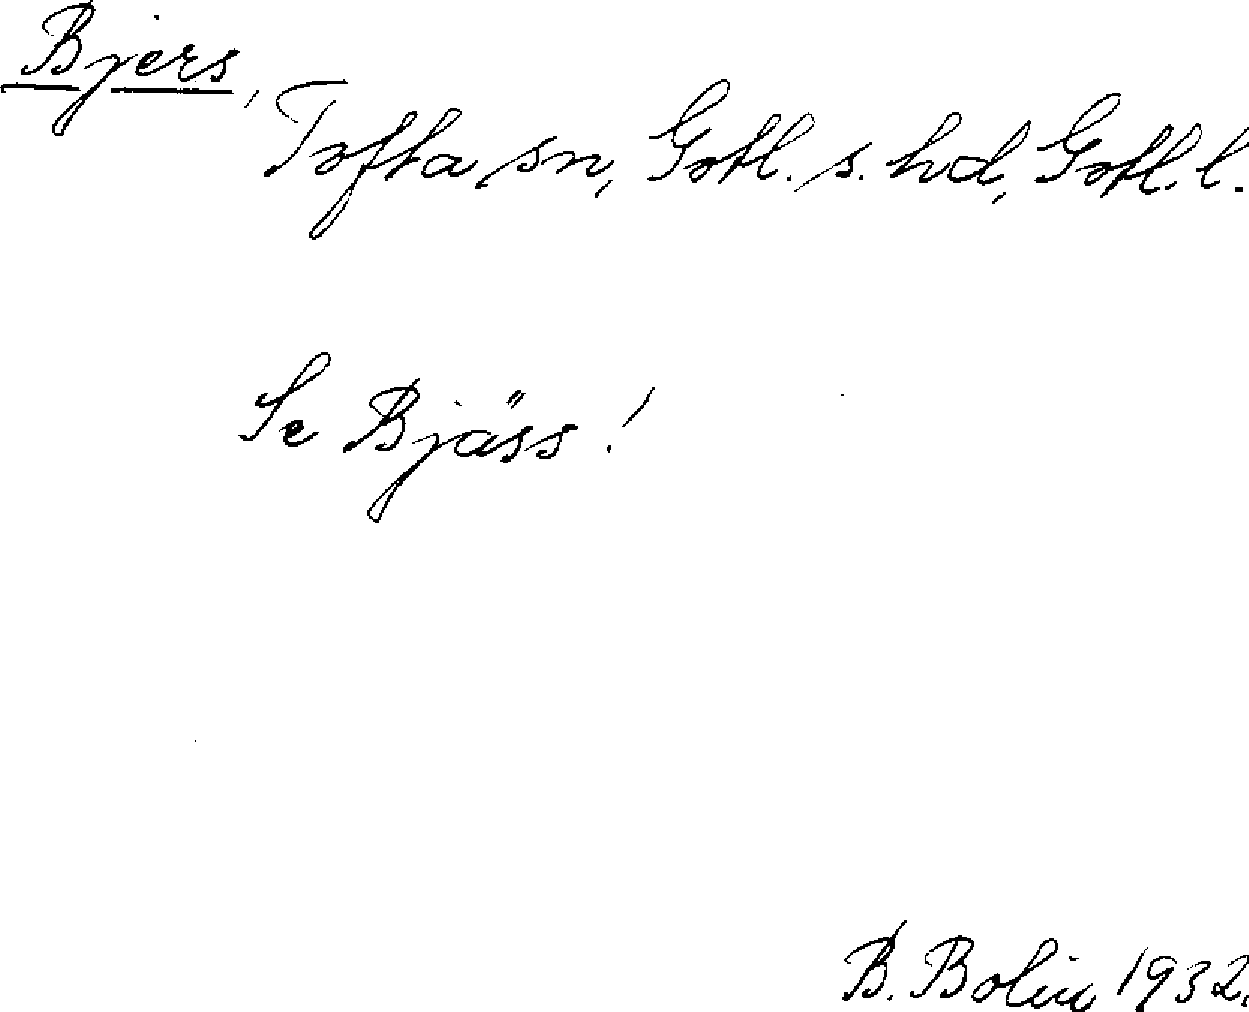 Bjers,
Tofta sn, Gotl. s. hd, Gotl. l.
Se Bjäss!
B. Bolin 1932.